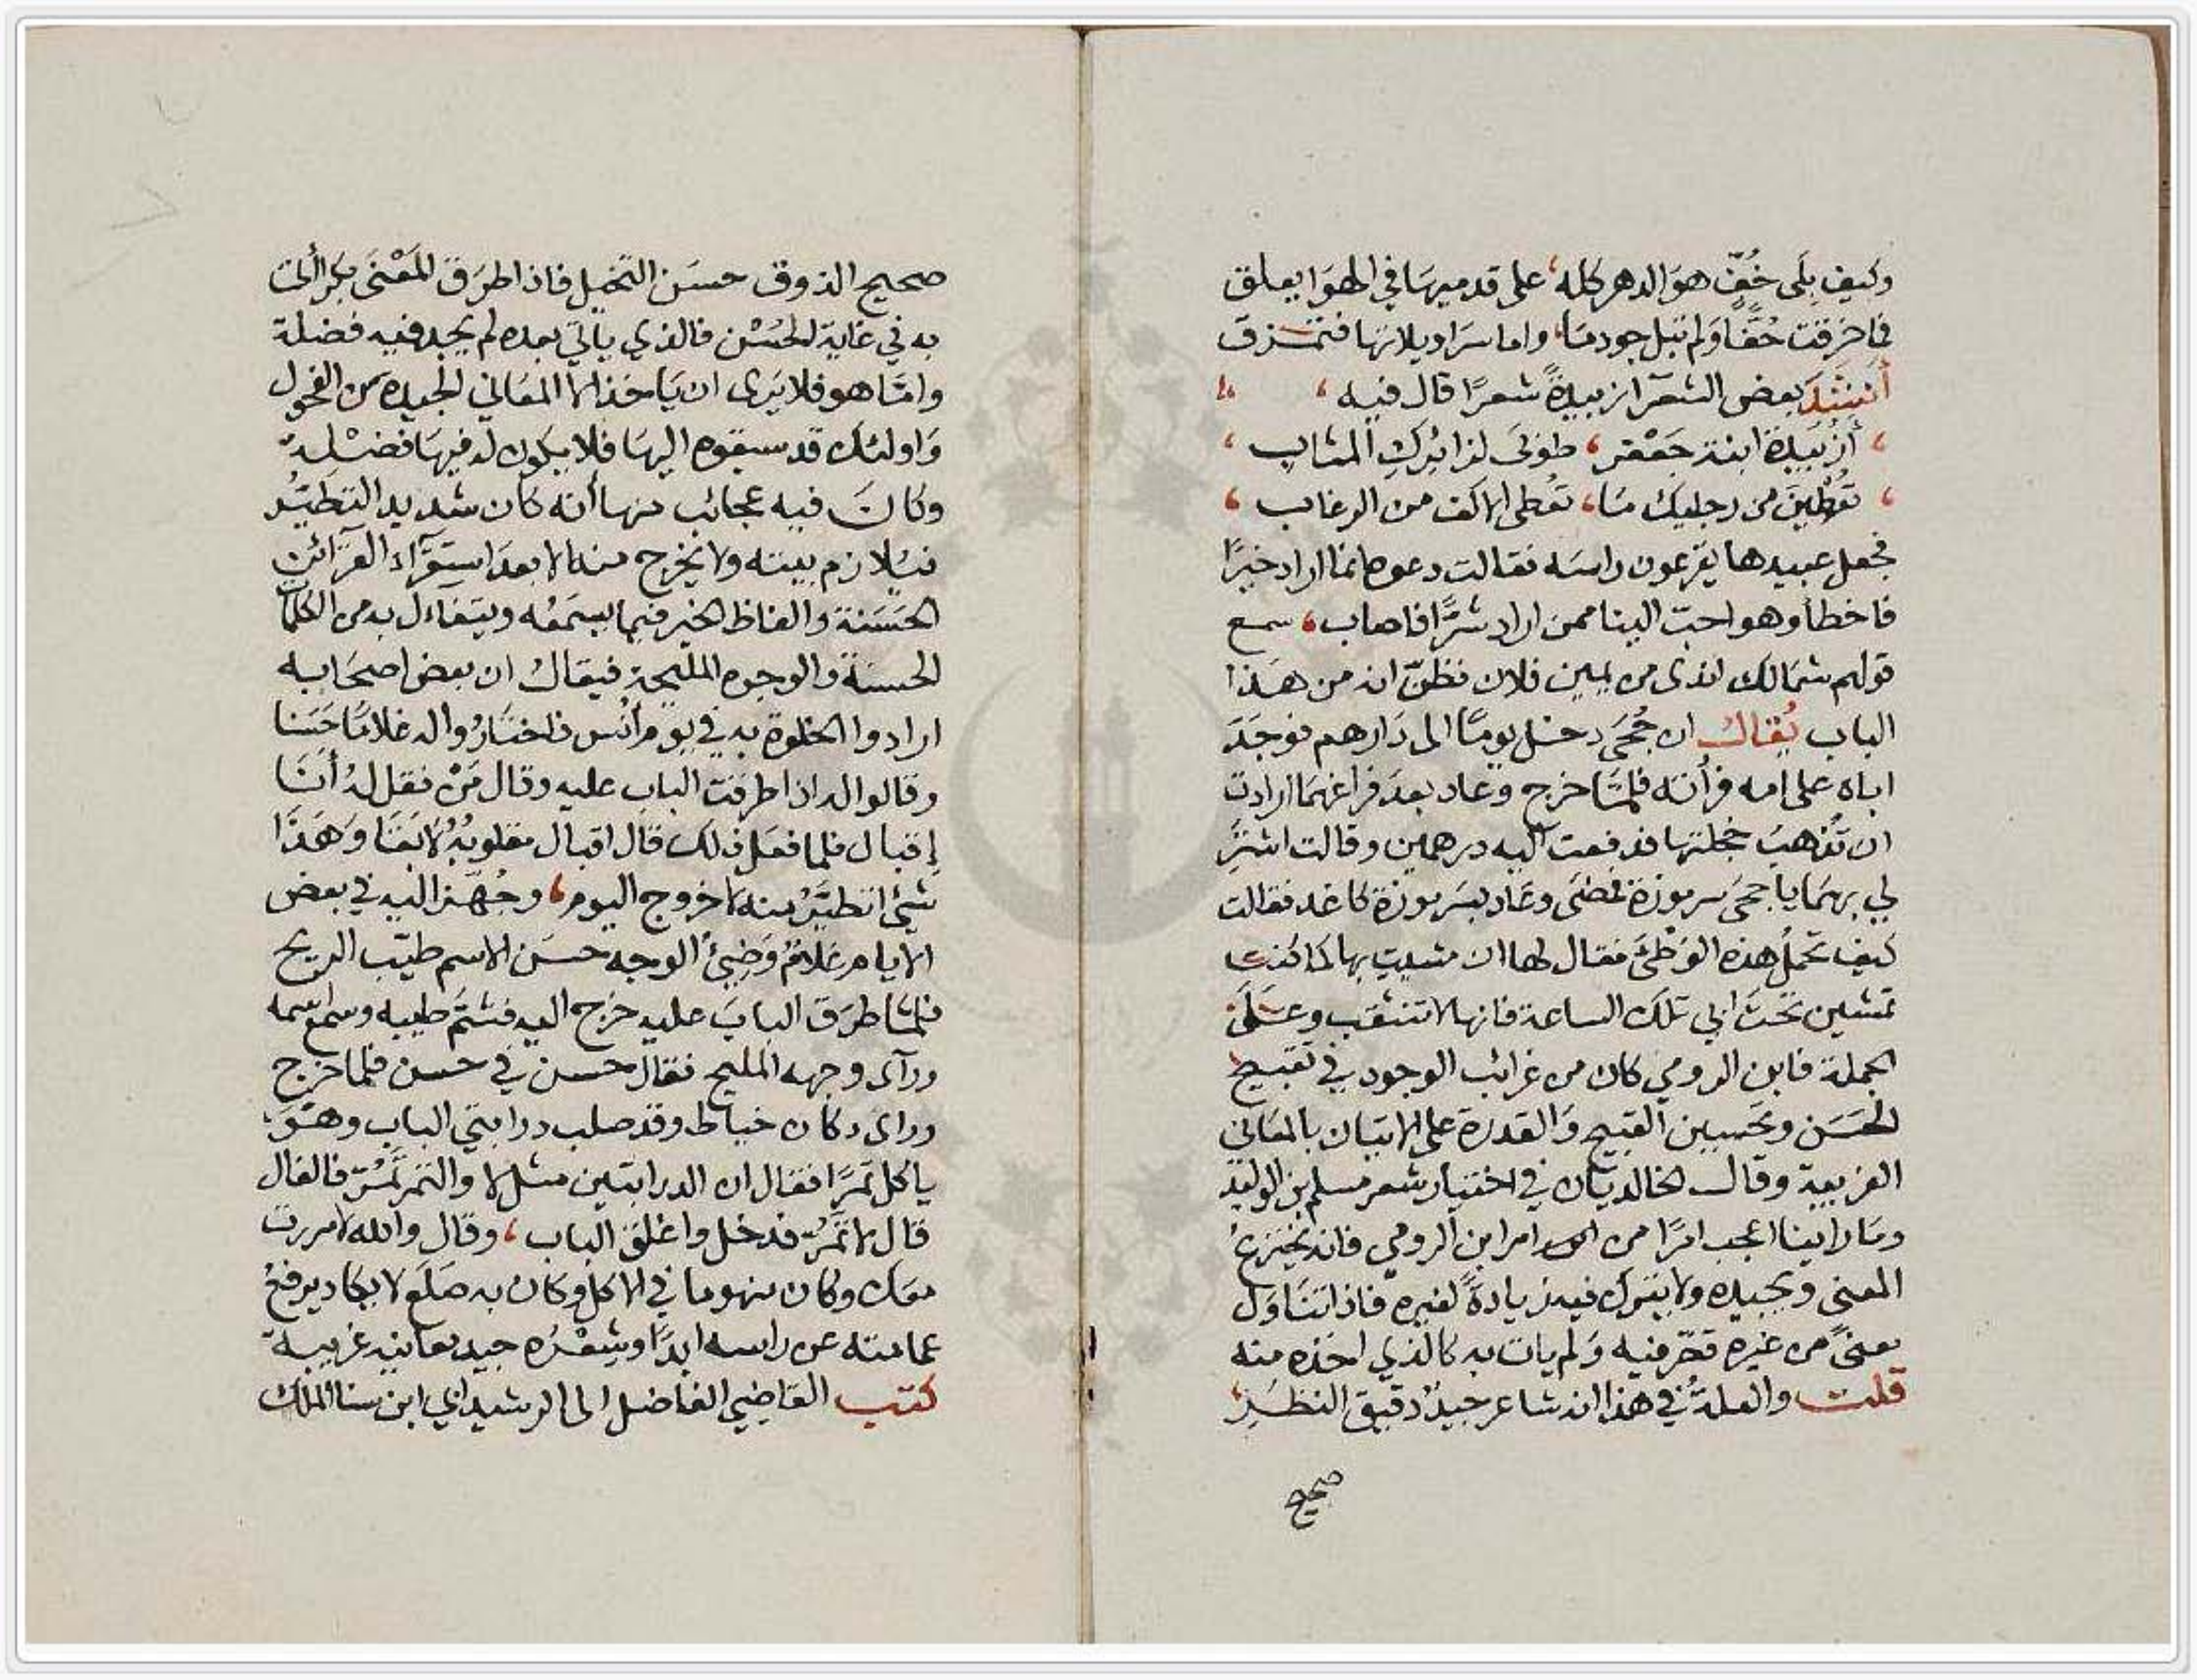 وكيف بلى خُفٍّ هوَ الدهر كله، على قدميهَا في الهوَا يعلق
فما خرقت خُفًّا وَلم تبل جوربًا، واما سرَاويلاتها فتمزق
أنشَدَ بعض الشعرَا زبيدةَ شعرًا قال فيه،
، أزُبَيدة ابنة جَعْفر، طوبَى لزائركِ المثاب،
، تُعْطِينَ من رجليك مَا، تعُطى الاكف من الرغاب،
فجعل عبيدها يقرعون راسَه فقالت دعوه انما اراد خيرًا
فاخطأ وهو احبّ الينا ممن اراد شرًّا فاصاب، سمع
قولهم شمالك اندى من يمين فلان فظنّ انه من هَذا
الباب يُقالُ ان جُحَى دخل يومًا الى دَارهم فوجَدَ
اباه على امه فرأته فلمّا خرج وعاد بعدَ فراغهمَا ارادت
ان تُذهبَ خجلتها فدفعت اليه درهمين وقالت اشترِ
لي بهمَا يا جحىَ سرموزة فمضَى وعَاد بسَرموزة كاغد فقالت
كيف تحملُ هذه الوَطْئَ فقال لها ان مشيتِ بها كما كنتِ
تمشين تحتَ ابي تلكَ الساعة فانها لا تنثقب وعَلَى
الجملة فابن الرومي كان من غرائب الوجود في تقبيح
الحَسَن وتحسين القبيح وَالقدرة على الاتيان بالمعَاني
الغريبة وقال الخالديّان في اختيار شعر مسلم بن الوليد
ومَا راينا اعجب امرًا من امر ابن الرومي فانه يخترعُ
المعنى ويجيده ولا يترك فيه زيادةً لغيره فاذا تنَاوَل
معنىً من غيره قصّر فيه وَلم يات به كالذي اخذه منه
قلت والعلةُ في هذا انه شاعر جيدُ دقيق النظَرِ
صحيح
صحيح الذوق حسَن التخيل فاذا طرَق المَعْنى بكرًا اتى
به في غاية الحُسْن فالذي ياتي بعده لم يجد فيه فضلة
وامّا هو فلا يَرى ان يَاخذ الا المعَاني الجيدة من الفحول
وَاولئك قد سبقوه اليهَا فلا يكون له فيهَا فضْلة
وكانَ فيه عجائب منها أنه كان شديد التطيُّر
فيُلازم بيته ولا يخرج منه الا بعدَ استقرَآء القرَائن
الحَسَنة والفاظ الخير فيما يسمَعُه ويتفاءل به من الكلمات
الحسنة والوجوه المليحة فيقال ان بعض اصحَابه
ارادوا الخلوة به في يوم أنْس فاختَارُوا له غلامًا حَسَنا
وقالوا له اذا طرقت الباب عليه وقال مَنْ فقل لهُ أنَا
إقبال فلما فعَل ذلك قال اقبال مقلوبُهُ لابقَا وَهَذا
شيْئ اتطيَّرُ منه لا خروج اليوم، وجُهّز اليه في بعض
الايام غلامُ وَضِيئُ الوجه حسَن الاسم طيّب الريح
فلمّا طرَق البابَ عليه خرج اليه فشمَّ طيبه وسمع اسمه
ورَآى وجهه المليح فقال حسن في حسن فلما خرج
وراى دكان خياط وقد صلب درابتي الباب وهوَ
ياكل تمرًا فقال ان الدرابتين مثل لا والتمر تَمُرّ فالفال
قال لا تمُرّ فدخل واغلق الباب، وقال والله لا مررت
معك وكان منهوما في الاكل وكان به صَلَع لا يكاد يرفع
عمامته عن راسه ابدًا وشِعْرُه جيد معانيه غريبة
كتب القاضي الفاضل الى الرشيد ابي ابن سنا الملك